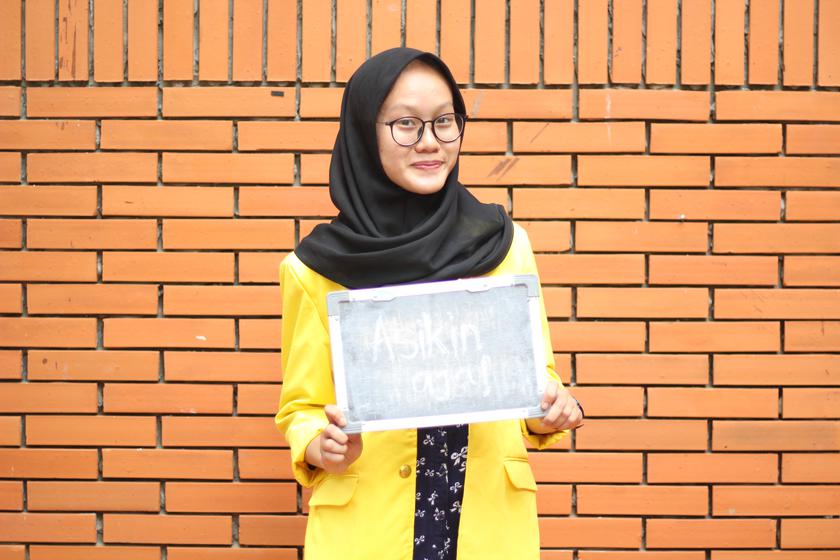 Asikin
aja!